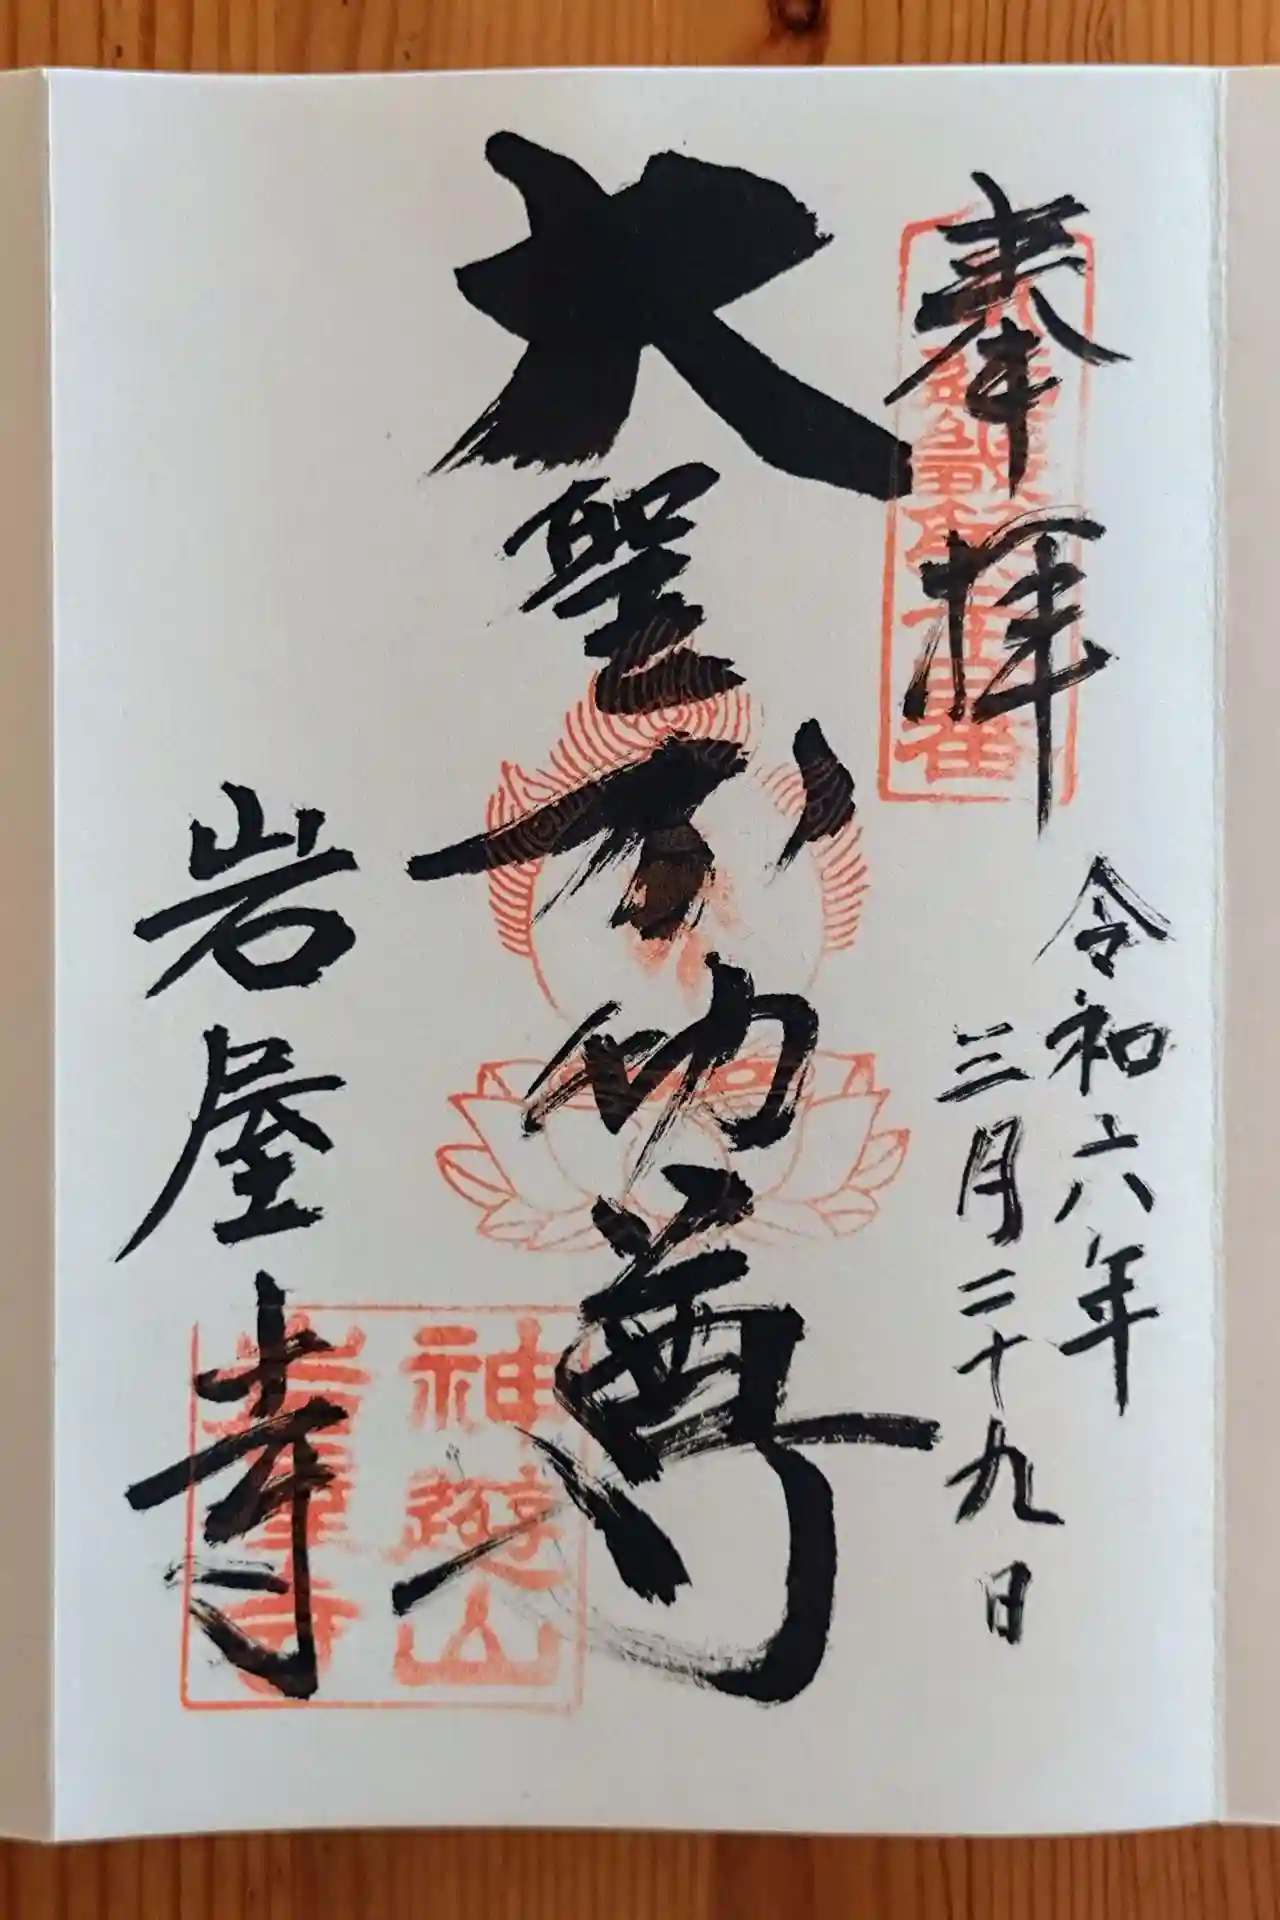 奉拝
令和六年
三月二十九日
大聖不動尊
岩屋寺
神遊山
岩屋寺